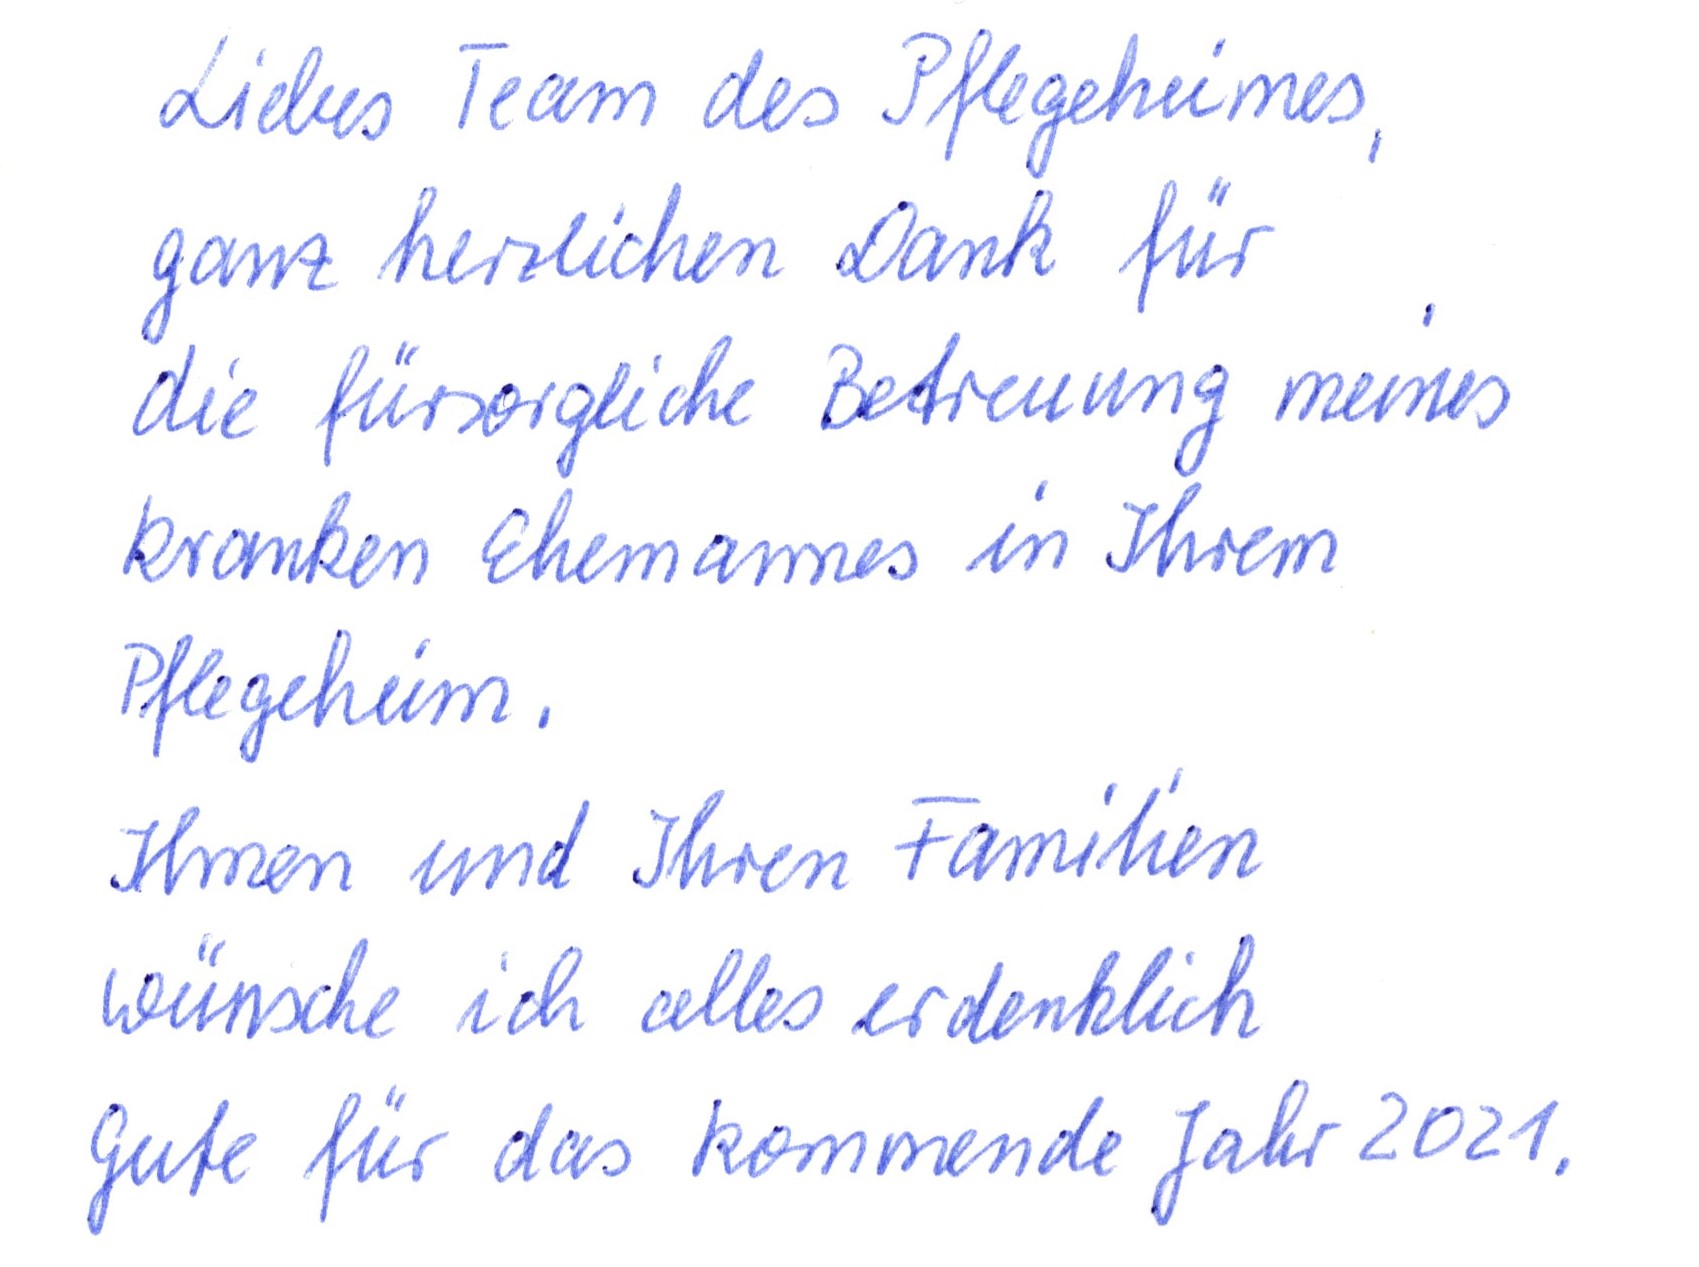 Liebes Team des Pflegeheimes,
ganz herzlichen Dank für
die fürsorgliche Betreuung meines
kranken Ehemannes in Ihrem
Pflegeheim.
Ihnen und Ihren Familien
wünsche ich alles erdenklich
Gute für das kommende Jahr 2021.